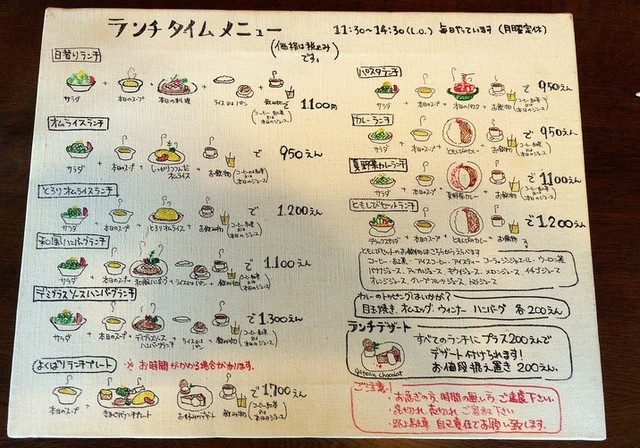 ランチタイムメニュー
11:30~14:30(L.O.) 毎日やっています(月曜定休)
(価格は税込み)です。
日替りランチ
サラダ + 本日のスープ + 本日の料理 + ライスorパン + お飲物 で 1,100円
オムライスランチ
サラダ + 本日のスープ + しっかりつつんだオムライス + お飲物 で 950えん
とろりオムライスランチ
サラダ + 本日のスープ + とろりオムライス + お飲物 で 1,200えん
和風ハンバーグランチ
サラダ + 本日のスープ + 和風ハンバーグ + ライスorパン + お飲物 で 1,100えん
デミグラスソースハンバーグランチ
サラダ + 本日のスープ + デミグラスソースハンバーグランチ + ライスorパン + お飲物 で 1,300えん
よくばりランチプレート ※お時間がかかる場合があります。
本日のスープ + きまぐれランチプレート + + お飲物 で 1700えん
パスタランチ
サラダ + 本日のスープ + 本日のパスタ + お飲物 で 950えん
カレーランチ
サラダ + 本日のスープ + ともしびカレー + お飲物 で 950えん
夏野菜カレーランチ
サラダ + 本日のスープ + 夏野菜カレー + お飲物 で 1100えん
ともしびセットランチ
デラックスサラダ + 本日のスープ + ともしびカレー + お飲物 で 1200えん
ともしびセットのお飲物はこちらからえらべます
コーヒー・紅茶・アイスコーヒー・アイスティー・コーラ・ジンジャエール・ウーロン茶
バナナジュース・アップルジュース・キウイジュース・メロンジュース・イチゴジュース
オレンジジュース・グレープフルーツジュース・トマトジュース
カレーのトッピングはいかが?
目玉焼き、オムエッグ、ウィンナー ハンバーグ 各200えん
ランチデザート
すべてのランチにプラス200えんで
デザート付けられます!
お値段据え置き200えん。
gateau chocolat
ご注意!
・お急ぎの方、時間の無い方ご遠慮下さい。
・品切れ、売切れ、ご容赦下さい
・路上駐車 自己責任でお願い致します。